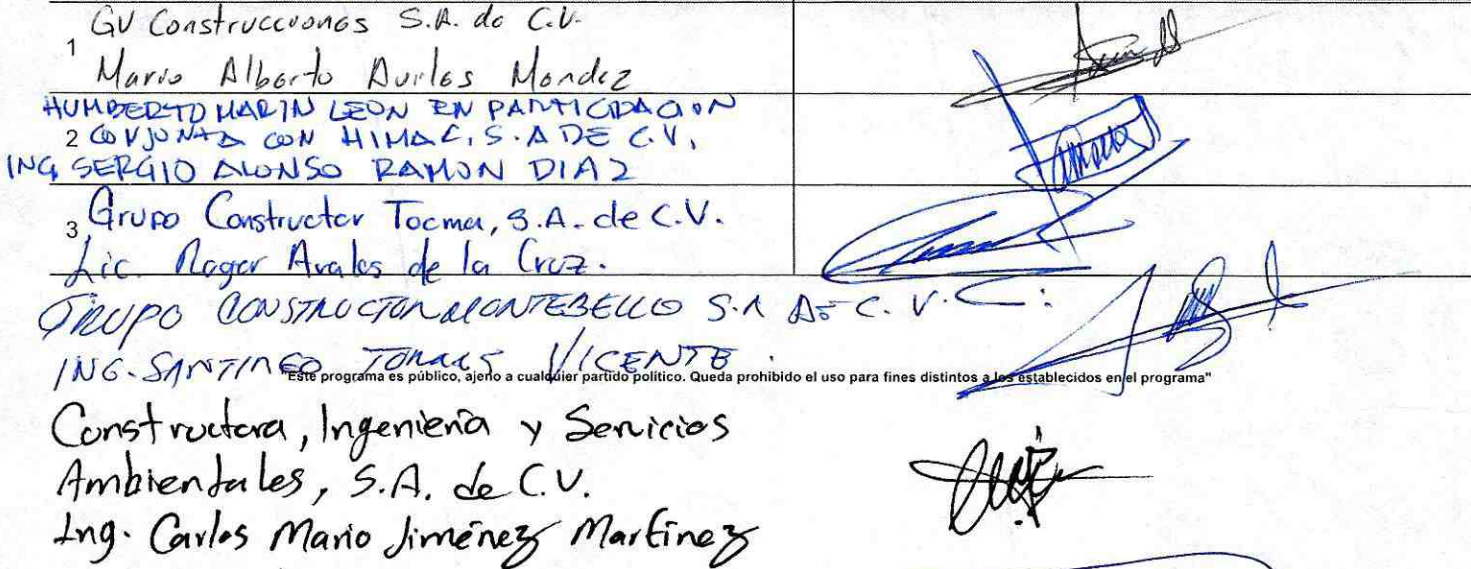 GV Construcciones S.A. de C.V.
1
Mario Alberto Aviles Mendez
HUMBERTO MARIN LEON EN PARTICIPACION
2 CONJUNTA CON HIMAC, S.A DE C.V.
ING SERGIO ALONSO RAMON DIAZ
3 Grupo Constructor Tocma, S.A. de C.V.
Lic. Roger Avalos de la Cruz.
GRUPO CONSTRUCTOR MONTEBELLO S.A DE C.V.
ING. SANTIAGO TORRES VICENTE.
Este programa es público, ajeno a cualquier partido político. Queda prohibido el uso para fines distintos a los establecidos en el programa"
Constructora, Ingeniería y Servicios
Ambientales, S.A. de C.V.
Ing. Carlos Mario Jiménez Martínez